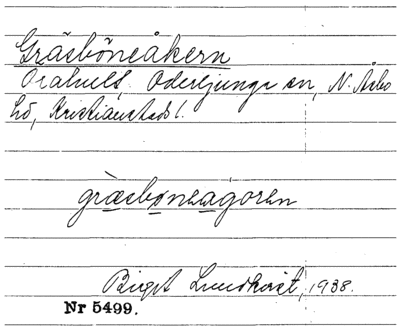 Gräsböneåkern
Orahult, Oderljunga sn, N. Åsbo
hd, Kristianstads l.
gräsbǫneagoren
Birgit Lundkvist, 1938.
Nr 5499.